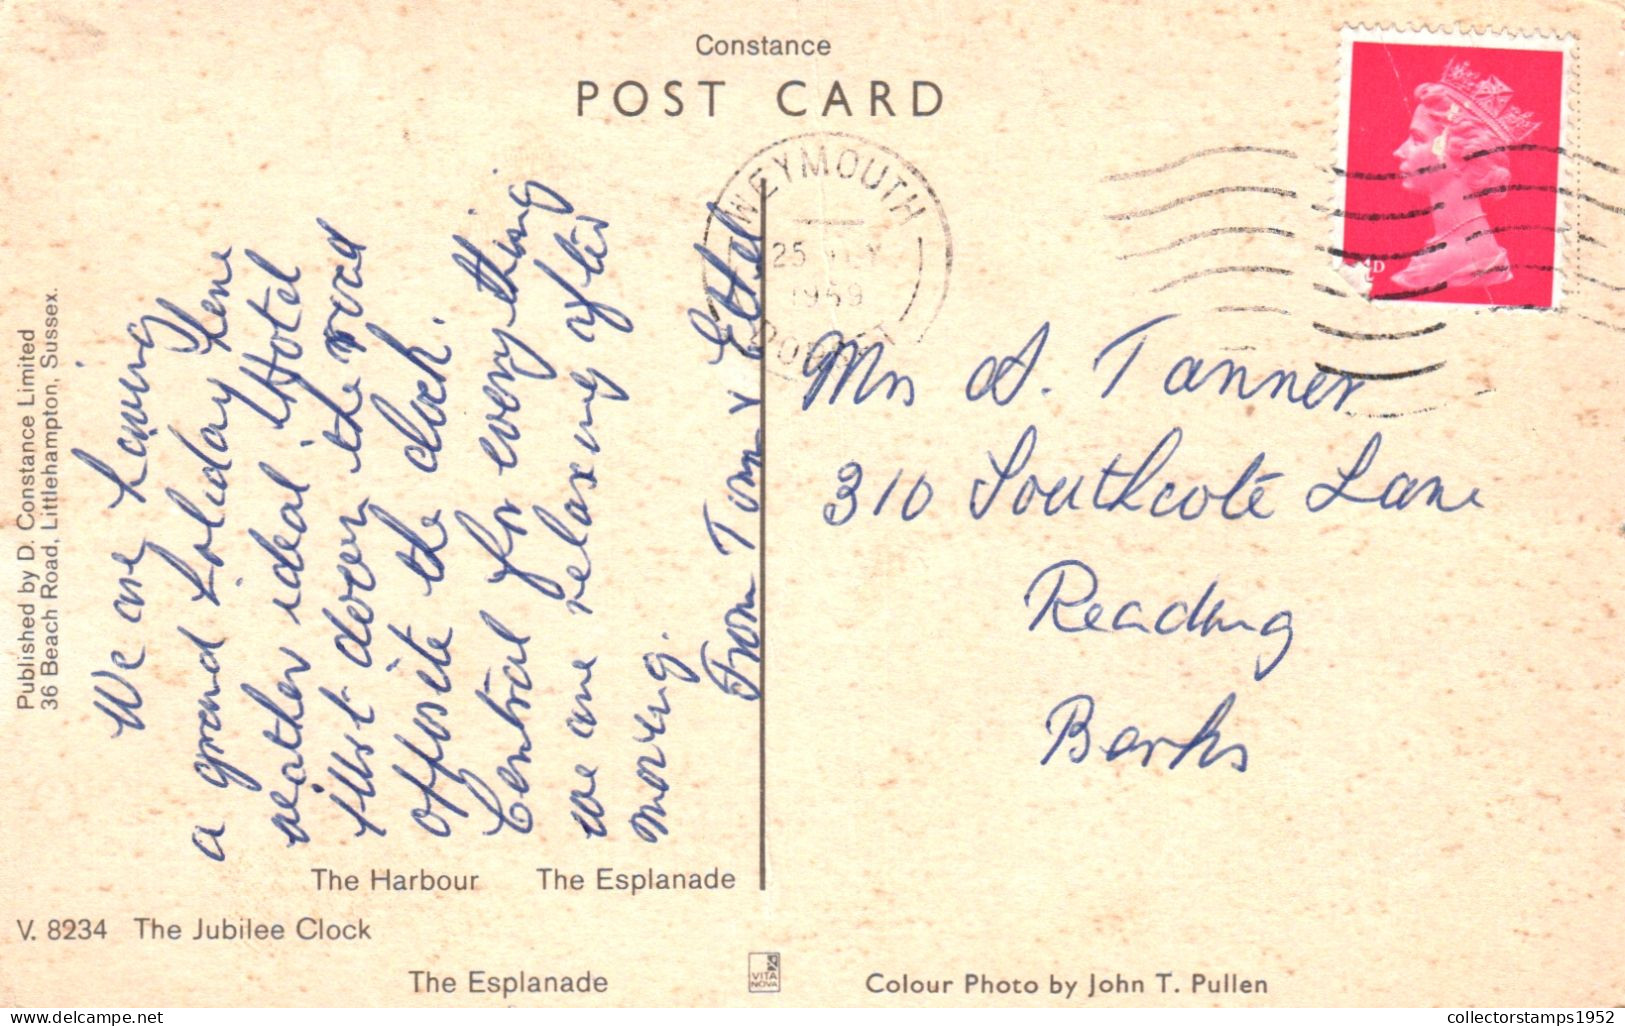 Constance
POST CARD
WEYMOUTH
25
1969
DORSET
D
We are having
a grand holiday here
weather ideal Hotel
just down the road
opposite the clock.
Central for everything
we are relaxing after
moving.
From Tom & Ethel
Mrs A. Tanner
310 Southcote Lane
Reading
Berks
Published by D. Constance Limited
36 Beach Road, Littlehampton, Sussex.
The Harbour The Esplanade
V. 8234 The Jubilee Clock
The Esplanade
VITA
NOVA
Colour Photo by John T. Pullen
www.delcampe.net
collectorstamps1952